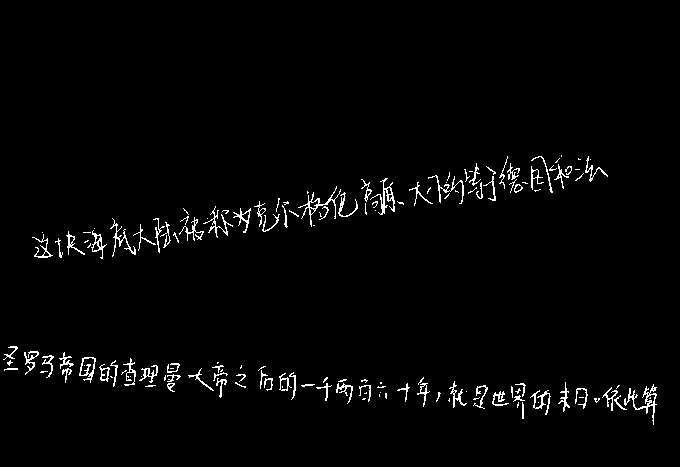 这块海底大陆被称为克尔格伦高原,大小约等于德国和法
圣罗马帝国的查理曼大帝之后的一千两百六十年,就是世界的末日。依此算